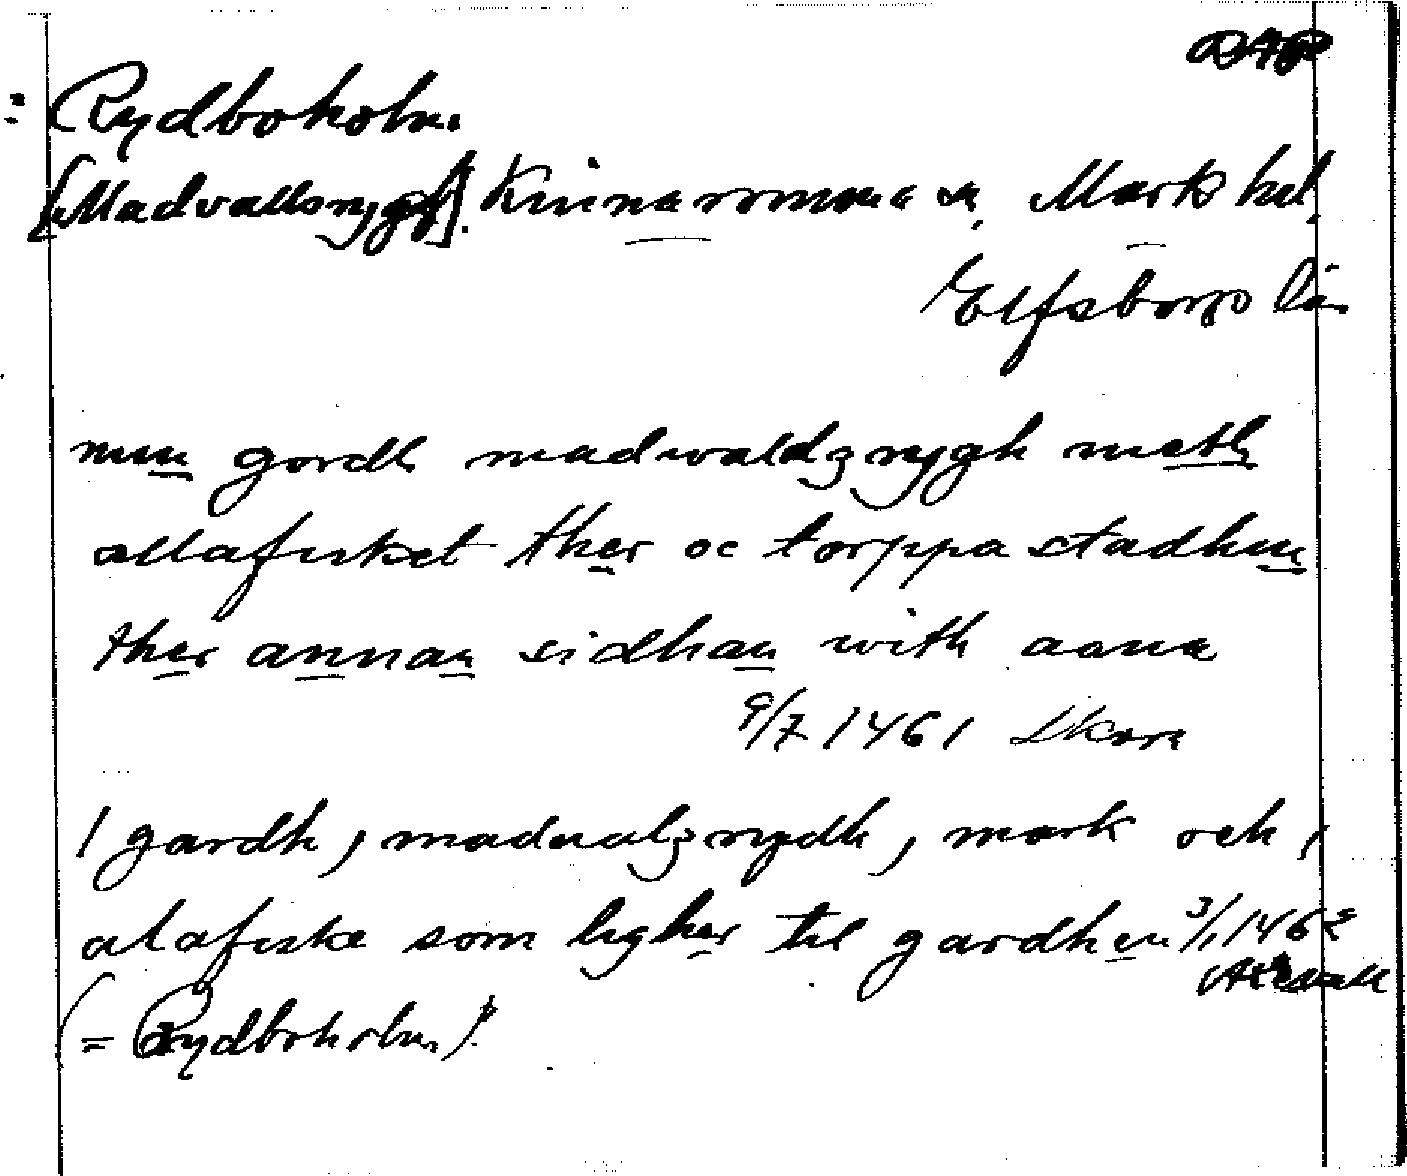 = Rydboholm
[Madvallsrygg]. Kinnarumma sn, Mark hd,
Elfsborgs län
min gordh madwaldz rygh meth
allafisket ther oc torppa stadhen
ther annan sidhan with aana
9/7 1461 Skara
1 gardh, madualz rydh, mark och,
alafiske som ligher til gardhen 3/1 1462
Axevall
(= Rydboholm)